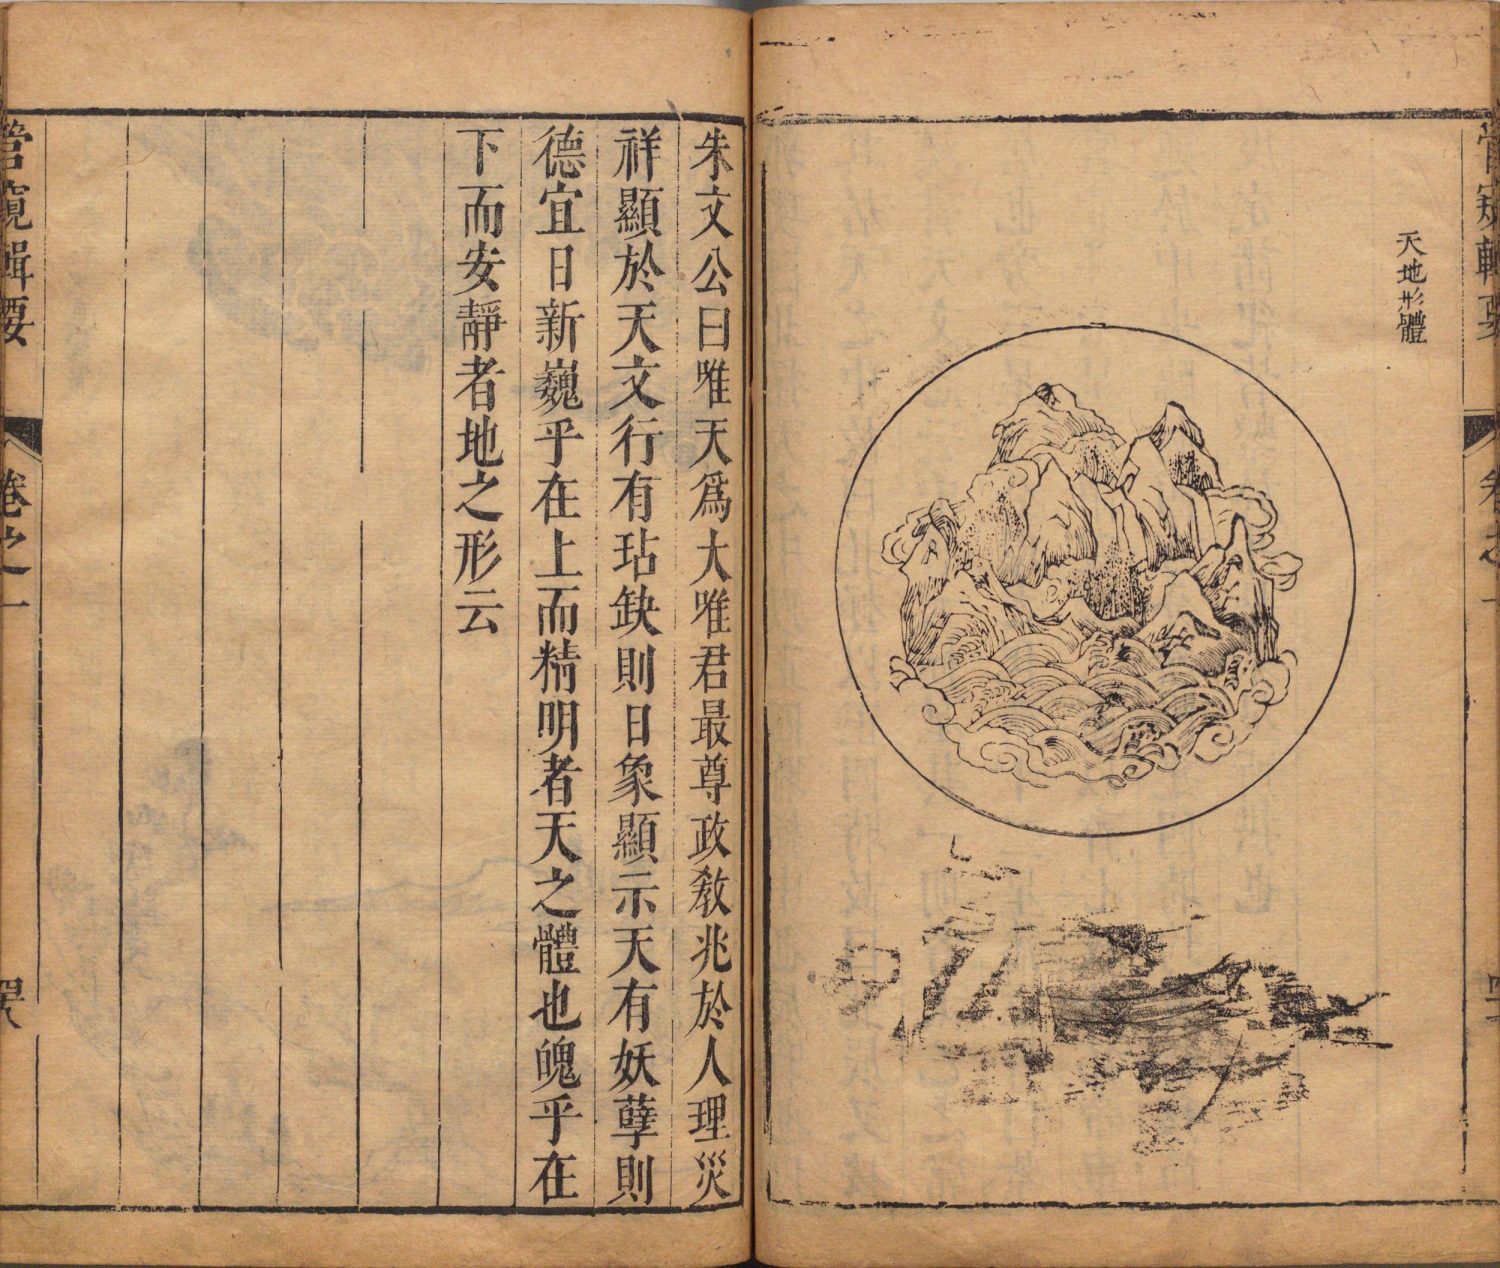 天地形體
朱文公曰唯天爲大唯君最尊政教兆於人理災
祥顯於天文行有玷缺則日象顯示天有妖孽則
德宜日新巍乎在上而精明者天之體也魄乎在
下而安靜者地之形云
管窺輯要
卷之一